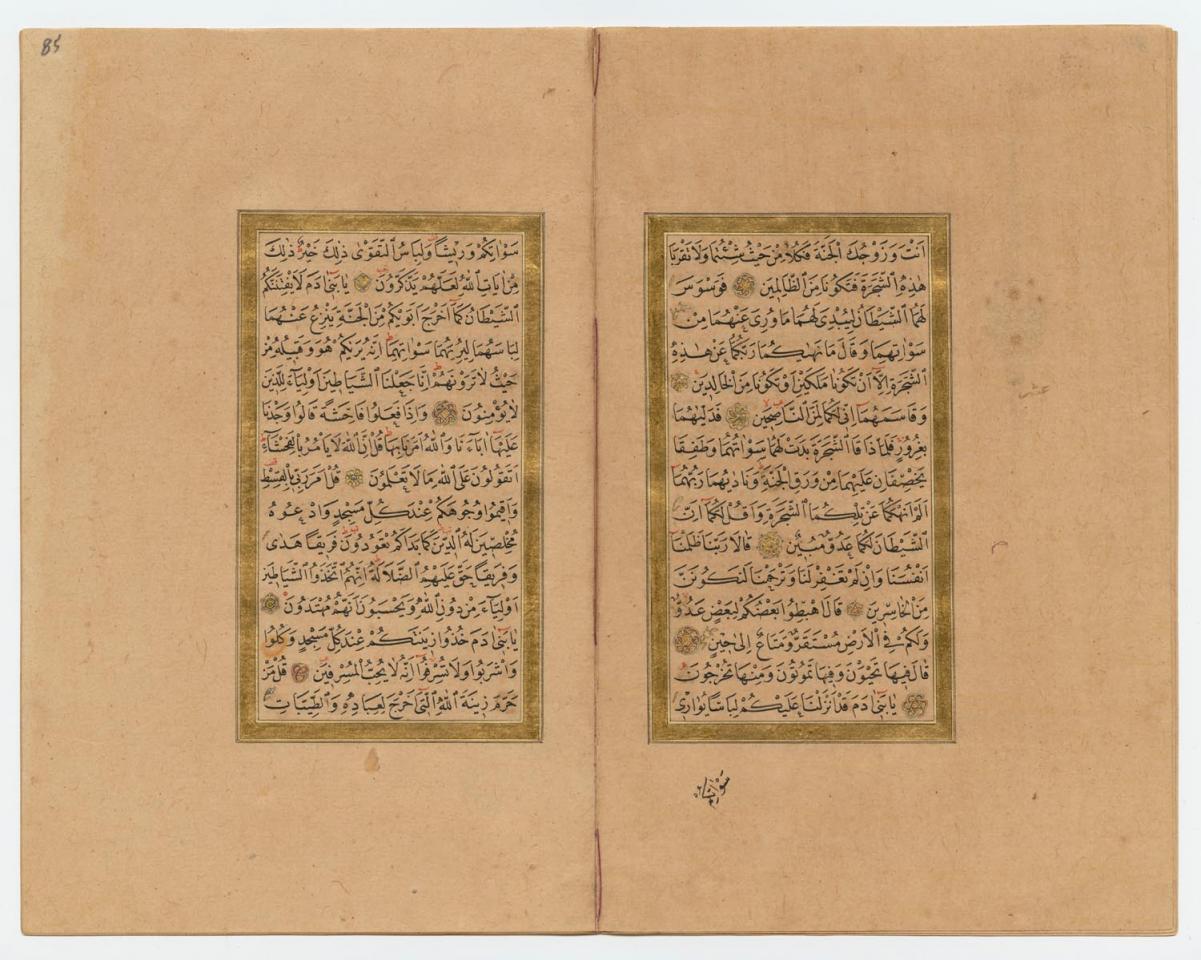 اَنْتَ وَزَوْجُكَ الْجَنَّةَ فَكُلَا مِنْ حَيْثُ شِئْتُمَا وَلَا تَقْرَبَا
هٰذِهِ الشَّجَرَةَ فَتَكُونَا مِنَ الظَّالِمِينَ فَوَسْوَسَ
لَهُمَا الشَّيْطَانُ لِيُبْدِىَ لَهُمَا مَا وُرِىَ عَنْهُمَا مِنْ
سَوْاٰتِهِمَا وَقَالَ مَا نَهٰيكُمَا رَبُّكُمَا عَنْ هٰذِهِ
الشَّجَرَةِ اِلَّا اَنْ تَكُونَا مَلَكَيْنِ اَوْ تَكُونَا مِنَ الْخَالِدِينَ
وَقَاسَمَهُمَا اِنِّى لَكُمَا لَمِنَ النَّاصِحِينَ فَدَلّٰيهُمَا
بِغُرُورٍ فَلَمَّا ذَاقَا الشَّجَرَةَ بَدَتْ لَهُمَا سَوْاٰتُهُمَا وَطَفِقَا
يَخْصِفَانِ عَلَيْهِمَا مِنْ وَرَقِ الْجَنَّةِ وَنَادٰيهُمَا رَبُّهُمَا
اَلَمْ اَنْهَكُمَا عَنْ تِلْكُمَا الشَّجَرَةِ وَاَقُلْ لَكُمَا اِنَّ
الشَّيْطَانَ لَكُمَا عَدُوٌّ مُبِينٌ قَالَا رَبَّنَا ظَلَمْنَا
اَنْفُسَنَا وَاِنْ لَمْ تَغْفِرْ لَنَا وَتَرْحَمْنَا لَنَكُونَنَّ
مِنَ الْخَاسِرِينَ قَالَ اهْبِطُوا بَعْضُكُمْ لِبَعْضٍ عَدُوٌّ
وَلَكُمْ فِى الْاَرْضِ مُسْتَقَرٌّ وَمَتَاعٌ اِلٰى حِينٍ
قَالَ فِيهَا تَحْيَوْنَ وَفِيهَا تَمُوتُونَ وَمِنْهَا تُخْرَجُونَ
يَا بَنِى اٰدَمَ قَدْ اَنْزَلْنَا عَلَيْكُمْ لِبَاسًا يُوَارِى
سَوْاٰتِكُمْ
85
سَوْاٰتِكُمْ وَرِيشًا وَلِبَاسُ التَّقْوٰى ذٰلِكَ خَيْرٌ ذٰلِكَ
مِنْ اٰيَاتِ اللّٰهِ لَعَلَّهُمْ يَذَّكَّرُونَ يَا بَنِى اٰدَمَ لَا يَفْتِنَنَّكُمُ
الشَّيْطَانُ كَمَا اَخْرَجَ اَبَوَيْكُمْ مِنَ الْجَنَّةِ يَنْزِعُ عَنْهُمَا
لِبَاسَهُمَا لِيُرِيَهُمَا سَوْاٰتِهِمَا اِنَّهُ يَرٰيكُمْ هُوَ وَقَبِيلُهُ مِنْ
حَيْثُ لَا تَرَوْنَهُمْ اِنَّا جَعَلْنَا الشَّيَاطِينَ اَوْلِيَاءَ لِلَّذِينَ
لَا يُؤْمِنُونَ وَاِذَا فَعَلُوا فَاحِشَةً قَالُوا وَجَدْنَا
عَلَيْهَا اٰبَاءَنَا وَاللّٰهُ اَمَرَنَا بِهَا قُلْ اِنَّ اللّٰهَ لَا يَاْمُرُ بِالْفَحْشَاءِ
اَتَقُولُونَ عَلَى اللّٰهِ مَا لَا تَعْلَمُونَ قُلْ اَمَرَ رَبِّى بِالْقِسْطِ
وَاَقِيمُوا وُجُوهَكُمْ عِنْدَ كُلِّ مَسْجِدٍ وَادْعُوهُ
مُخْلِصِينَ لَهُ الدِّينَ كَمَا بَدَاَكُمْ تَعُودُونَ فَرِيقًا هَدٰى
وَفَرِيقًا حَقَّ عَلَيْهِمُ الضَّلَالَةُ اِنَّهُمُ اتَّخَذُوا الشَّيَاطِينَ
اَوْلِيَاءَ مِنْ دُونِ اللّٰهِ وَيَحْسَبُونَ اَنَّهُمْ مُهْتَدُونَ
يَا بَنِى اٰدَمَ خُذُوا زِينَتَكُمْ عِنْدَ كُلِّ مَسْجِدٍ وَكُلُوا
وَاشْرَبُوا وَلَا تُسْرِفُوا اِنَّهُ لَا يُحِبُّ الْمُسْرِفِينَ قُلْ مَنْ
حَرَّمَ زِينَةَ اللّٰهِ الَّتِى اَخْرَجَ لِعِبَادِهِ وَالطَّيِّبَاتِ